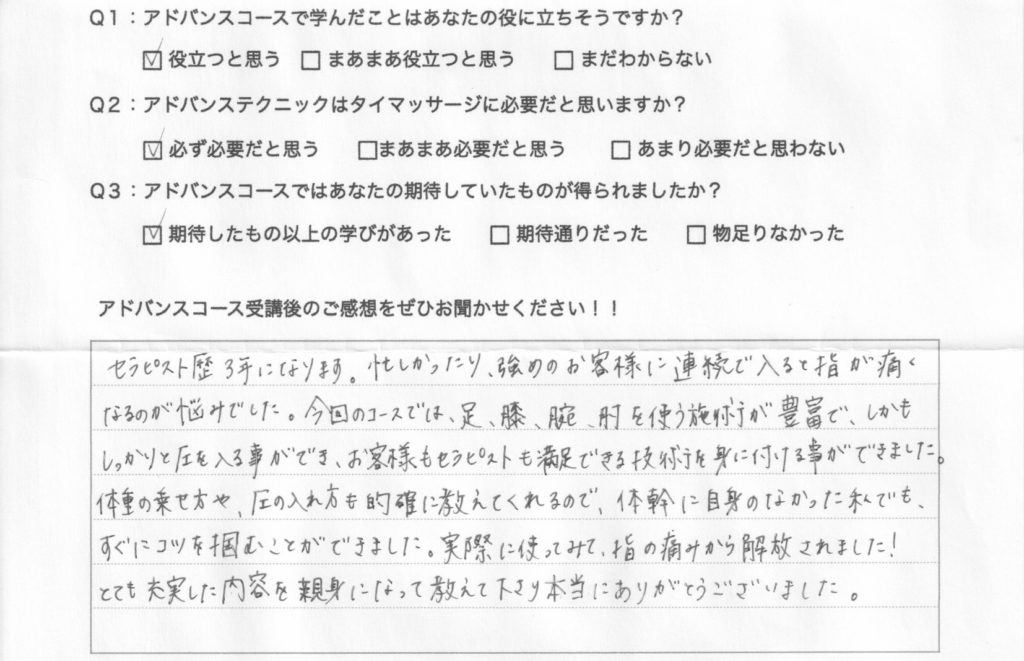 Q1：アドバンスコースで学んだことはあなたの役に立ちそうですか？
☑ 役立つと思う □ まあまあ役立つと思う □ まだわからない
Q2：アドバンステクニックはタイマッサージに必要だと思いますか？
☑ 必ず必要だと思う □まあまあ必要だと思う □ あまり必要だと思わない
Q3：アドバンスコースではあなたの期待していたものが得られましたか？
☑ 期待したもの以上の学びがあった □ 期待通りだった □ 物足りなかった
アドバンスコース受講後のご感想をぜひお聞かせください！！
セラピスト歴3年になります。忙しかったり、強めのお客様に連続で入ると指が痛く
なるのが悩みでした。今回のコースでは、足、膝、腕、肘を使う施術が豊富で、しかも
しっかりと圧を入る事ができ、お客様もセラピストも満足できる技術を身に付ける事ができました。
体重の乗せ方や、圧の入れ方も的確に教えてくれるので、体幹に自身のなかった私でも、
すぐにコツを掴むことができました。実際に使ってみて、指の痛みから解放されました!
とても充実した内容を親身になって教えて下さり本当にありがとうございました。